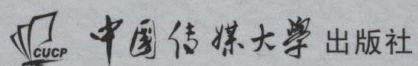 CUCP 中国传媒大学出版社